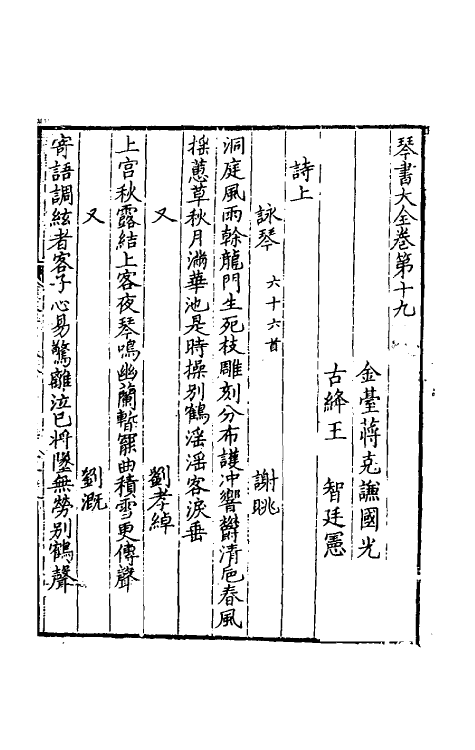 琴書大全卷第十九
金臺蔣克謙國光
古絳王　智廷憲
詩上
詠琴　六十六首　謝眺
洞庭風雨榦龍門生死枝雕刻分布護冲響欝清巵春風
揺蕙草秋月滿華池是時操別鶴滛滛客淚垂
又　劉孝綽
上宫秋露結上客夜琴鳴幽蘭暫罷曲積雪更傳聲
又　劉溉
寄語調絃者客子心易驚離泣已將墜無勞别鶴聲